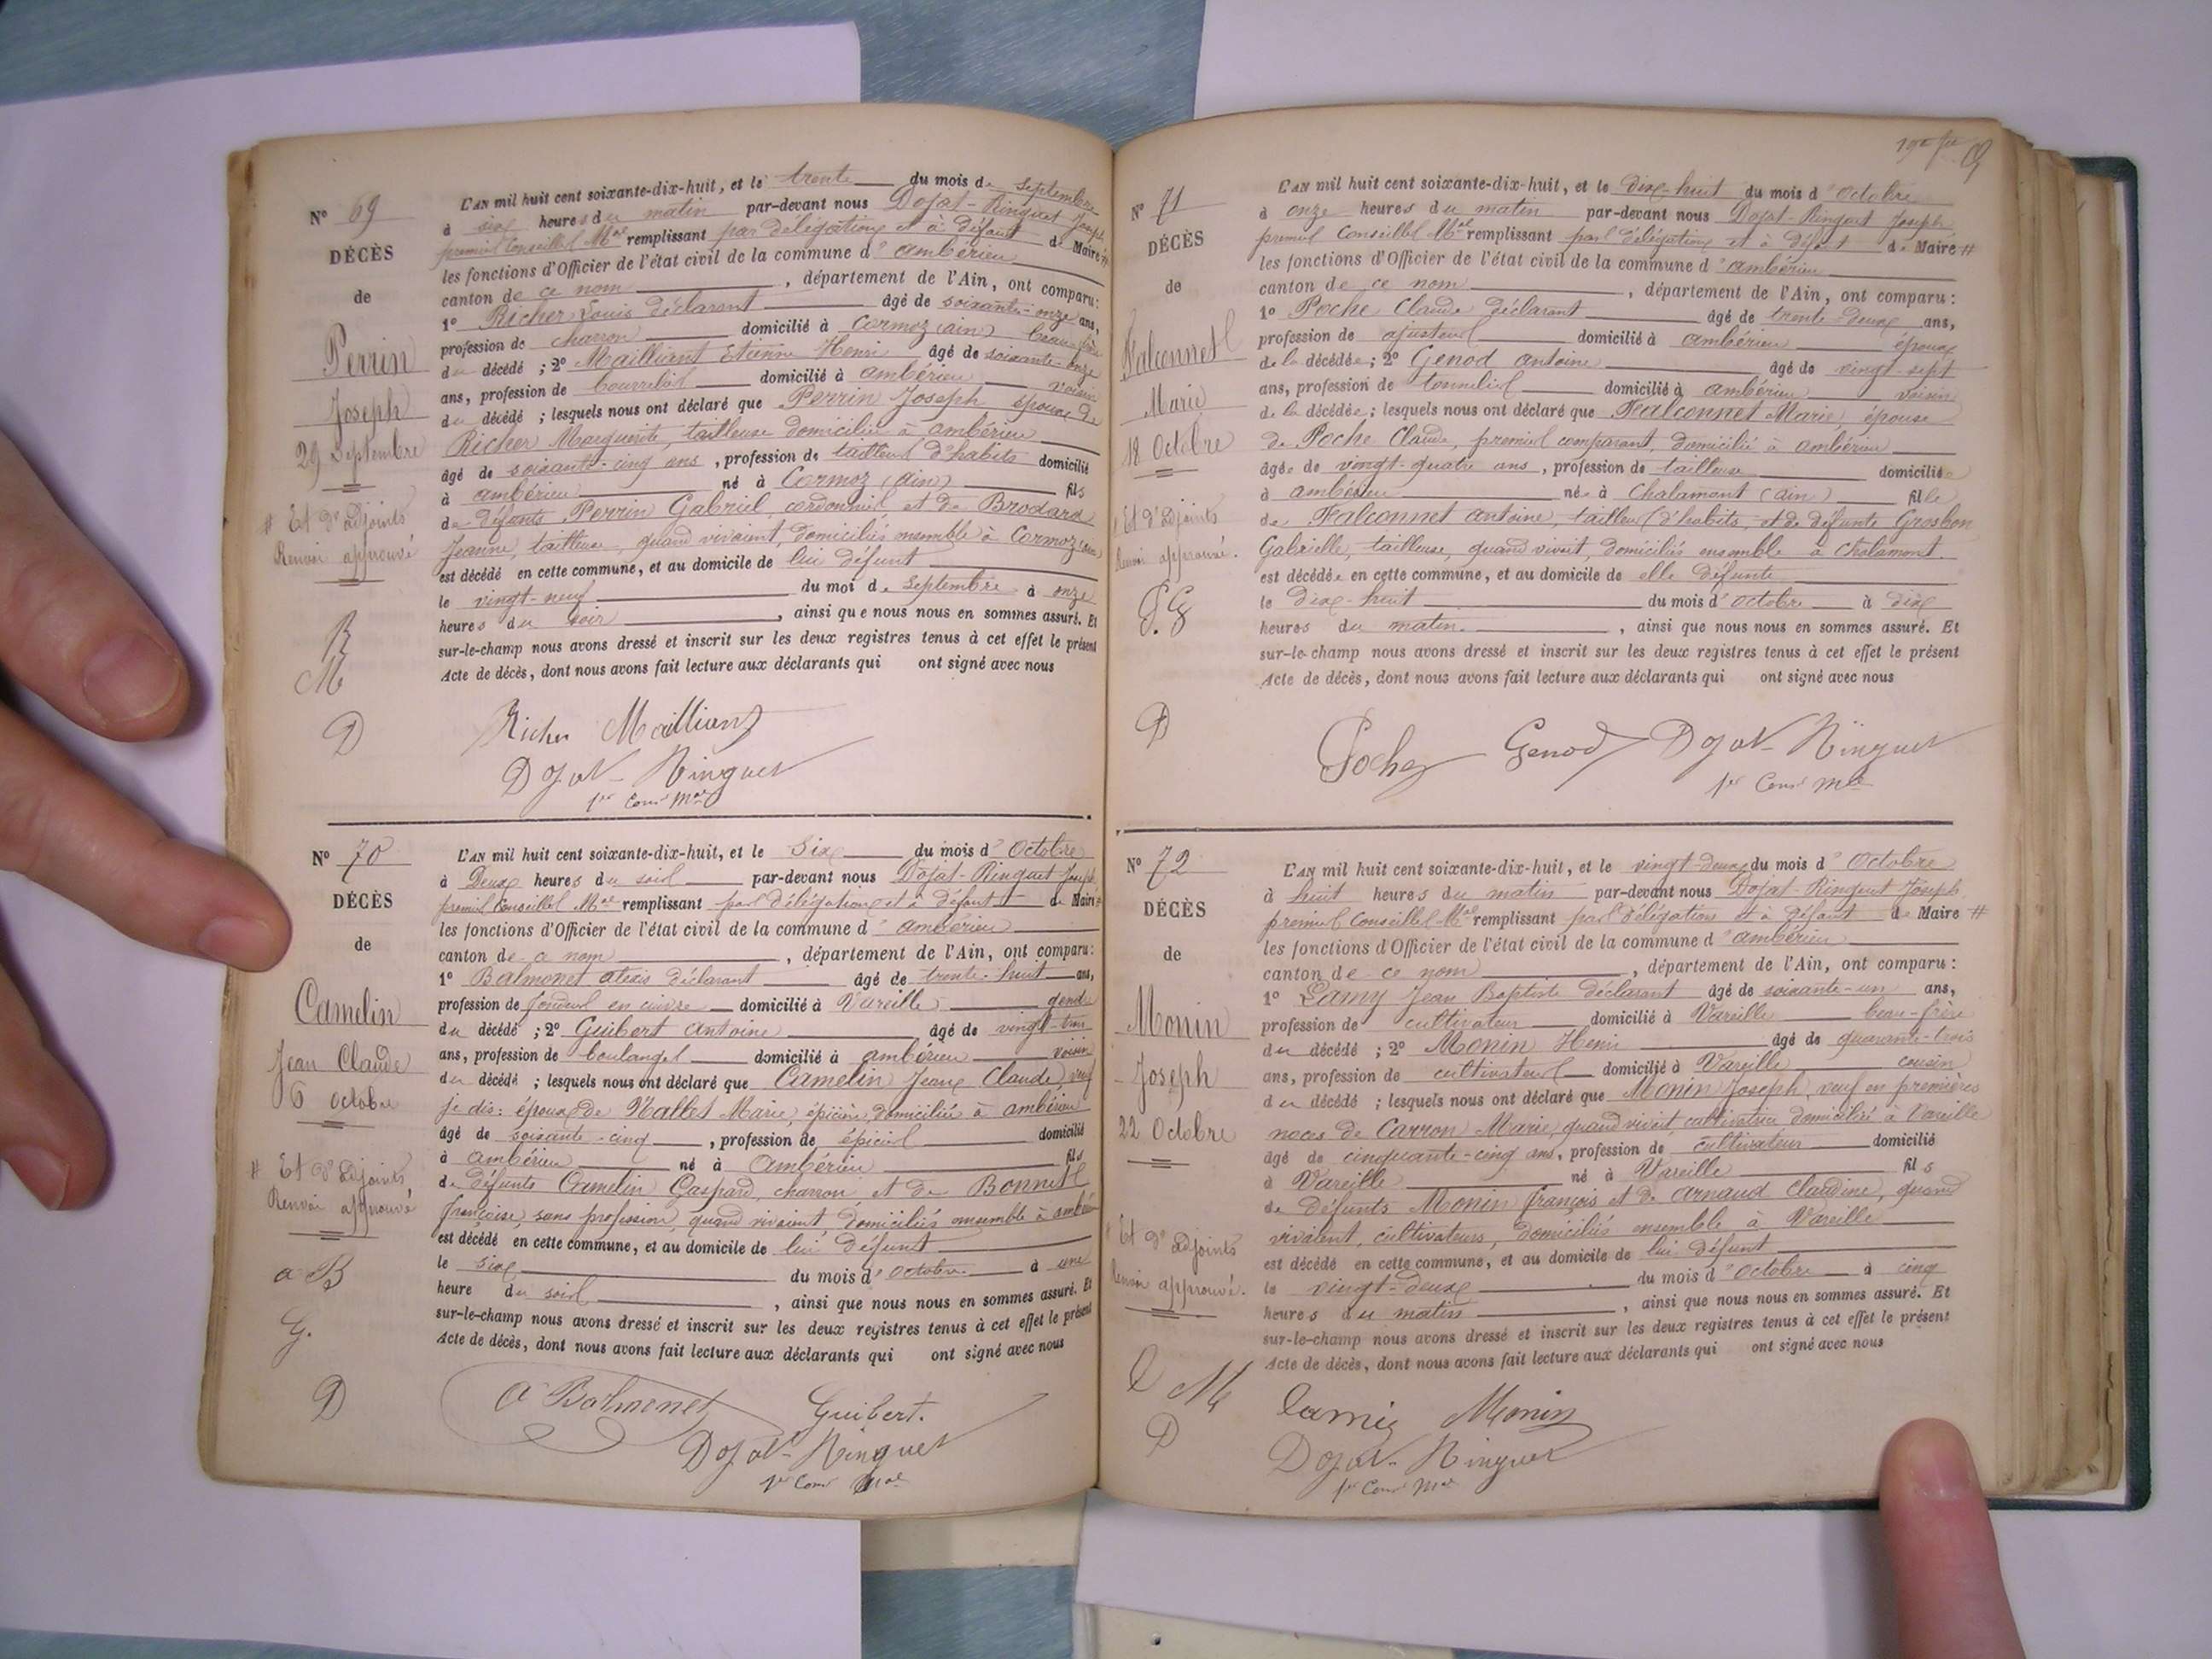 N° 69
DÉCÈS
de
Perrin
Joseph
29 Septembre
# Et d'adjoints
Renvoi approuvé
R
M
D
L'AN mil huit cent soixante-dix-huit, et le trente du mois de Septembre
à six heures du matin par-devant nous Dojat-Ringuet Joseph
premier Conseiller Mal remplissant par délégation et à défaut de Maire #
les fonctions d'Officier de l'état civil de la commune d'ambérieu
canton de ce nom, département de l'Ain, ont comparu:
1° Richer Louis déclarant âgé de soixante-onze ans,
profession de charron domicilié à Cormoz (ain) beau-frère
du décédé ; 2° Mailliant Etienne Henri âgé de soixante-onze
ans, profession de bourrelier domicilié à ambérieu voisin
du décédé ; lesquels nous ont déclaré que Perrin Joseph époux de
Richer Marguerite, tailleuse domiciliée à ambérieu
âgé de soixante-cinq ans, profession de tailleur d'habits domicilié
à ambérieu né à Cormoz (ain) fils
de défunts Perrin Gabriel, cordonnier et de Brodard
Jeanne, tailleuse, quand vivaient, domiciliés ensemble à Cormoz (ain)
est décédé en cette commune, et au domicile de lui défunt
le vingt-neuf du moi de Septembre à onze
heures du soir, ainsi que nous nous en sommes assuré. Et
sur-le-champ nous avons dressé et inscrit sur les deux registres tenus à cet effet le présent
Acte de décès, dont nous avons fait lecture aux déclarants qui ont signé avec nous
Richer Mailliant
Dojat-Ringuet
1er Conser Mal
N° 70
DÉCÈS
de
Camelin
Jean Claude
6 octobre
# Et d'adjoints
Renvoi approuvé
a B
G.
D
L'AN mil huit cent soixante-dix-huit, et le Six du mois d'Octobre
à Deux heures du soir par-devant nous Dojat-Ringuet Joseph
premier Conseiller Mal remplissant par délégation et à défaut de Maire #
les fonctions d'Officier de l'état civil de la commune d'ambérieu
canton de ce nom, département de l'Ain, ont comparu:
1° Balmonet alexis déclarant âgé de trente-huit ans,
profession de fondeur en cuivre domicilié à Vareille gendre
du décédé ; 2° Guibert Antoine âgé de vingt-trois
ans, profession de boulanger domicilié à ambérieu voisin
du décédé ; lesquels nous ont déclaré que Camelin Jean Claude, veuf
je dis: époux de Mallet Marie, épicière, domiciliée à ambérieu
âgé de soixante-cinq, profession de épicier domicilié
à ambérieu né à Ambérieu fils
de défunts Camelin Gaspard, charron et de Bonnet
Françoise, sans profession, quand vivaient, domiciliés ensemble à ambérieu
est décédé en cette commune, et au domicile de lui défunt
le six du mois d'Octobre à une
heure du soir, ainsi que nous nous en sommes assuré. Et
sur-le-champ nous avons dressé et inscrit sur les deux registres tenus à cet effet le présent
Acte de décès, dont nous avons fait lecture aux déclarants qui ont signé avec nous
a Balmonet Guibert.
Dojat-Ringuet
1er Conser Mal
69
N° 71
DÉCÈS
de
Falconnet
Marie
18 Octobre
# Et d'Adjoints
Renvoi approuvé.
P. G
D
L'AN mil huit cent soixante-dix-huit, et le dix-huit du mois d'Octobre
à onze heures du matin par-devant nous Dojat-Ringuet Joseph
premier Conseiller Mal remplissant par délégation et à défaut de Maire #
les fonctions d'Officier de l'état civil de la commune d'ambérieu
canton de ce nom, département de l'Ain, ont comparu:
1° Poche Claude déclarant âgé de trente-deux ans,
profession de ajusteur domicilié à ambérieu époux
de la décédée; 2° Genod antoine âgé de vingt-sept
ans, profession de tonnelier domicilié à ambérieu voisin
de la décédée; lesquels nous ont déclaré que Falconnet Marie, épouse
de Poche Claude, premier comparant, domicilié à ambérieu
âgée de vingt-quatre ans, profession de tailleuse domiciliée
à ambérieu née à Chalamont (ain) fille
de Falconnet antoine, tailleur d'habits, et de défunte Grosbon
Gabrielle, tailleuse, quand vivait, domiciliés ensemble à Chalamont.
est décédée en cette commune, et au domicile de elle défunte
le dix-huit du mois d'octobre à dix
heures du matin, ainsi que nous nous en sommes assuré. Et
sur-le-champ nous avons dressé et inscrit sur les deux registres tenus à cet effet le présent
Acte de décès, dont nous avons fait lecture aux déclarants qui ont signé avec nous
Poche Genod Dojat-Ringuet
1er Conser Mal
N° 72
DÉCÈS
de
Monin
Joseph
22 Octobre
# Et d'adjoints
Renvoi approuvé.
L M
D
L'AN mil huit cent soixante-dix-huit, et le vingt-deux du mois d'Octobre
à huit heures du matin par-devant nous Dojat-Ringuet Joseph
premier Conseiller Mal remplissant par délégation et à défaut de Maire #
les fonctions d'Officier de l'état civil de la commune d'ambérieu
canton de ce nom, département de l'Ain, ont comparu:
1° Lamy Jean Baptiste déclarant âgé de soixante-un ans,
profession de cultivateur domicilié à Vareille beau-frère
du décédé ; 2° Monin Henri âgé de quarante-trois
ans, profession de cultivateur domicilié à Vareille cousin
du décédé ; lesquels nous ont déclaré que Monin Joseph, veuf en premières
noces de Carron Marie, quand vivait cultivatrice domiciliée à Vareille
âgé de cinquante-cinq ans, profession de cultivateur domicilié
à Vareille né à Vareille fils
de défunts Monin françois et de arnaud Claudine, quand
vivaient, cultivateurs, domiciliés ensemble à Vareille
est décédé en cette commune, et au domicile de lui défunt
le vingt-deux du mois d'octobre à cinq
heures du matin, ainsi que nous nous en sommes assuré. Et
sur-le-champ nous avons dressé et inscrit sur les deux registres tenus à cet effet le présent
Acte de décès, dont nous avons fait lecture aux déclarants qui ont signé avec nous
Lamis Monin
Dojat-Ringuet
1er Conser Mal